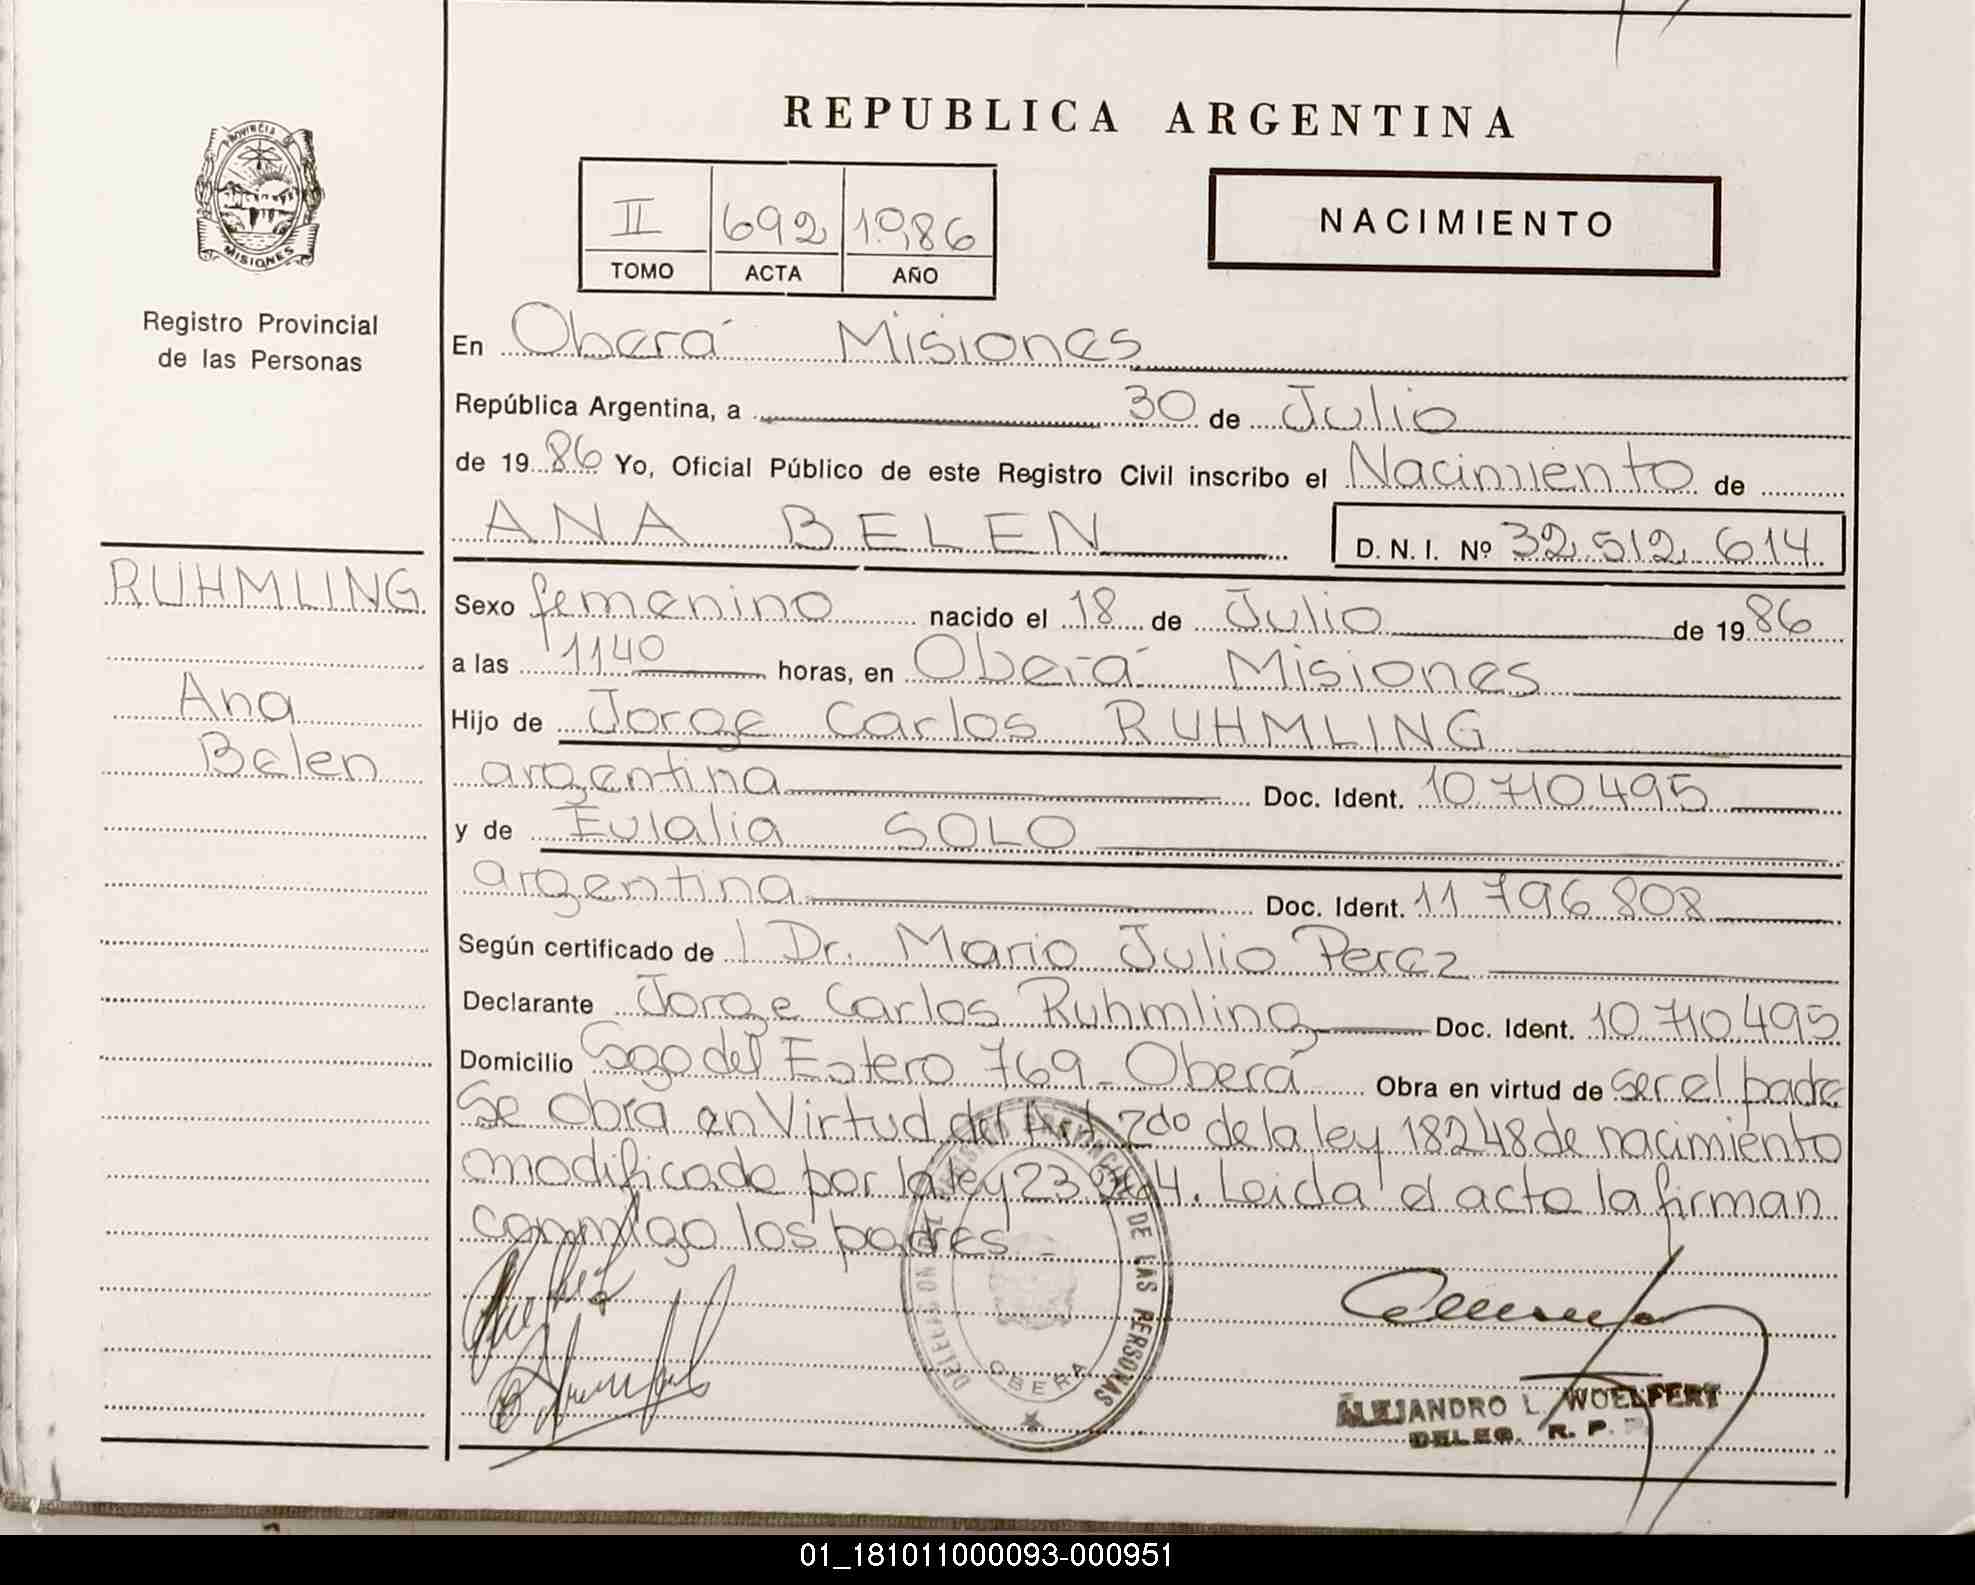 REPUBLICA ARGENTINA
PROVINCIA DE
MISIONES
Registro Provincial
de las Personas
II 692 1986
TOMO ACTA AÑO
NACIMIENTO
En Oberá Misiones
República Argentina, a 30 de Julio
de 1986 Yo, Oficial Público de este Registro Civil inscribo el Nacimiento de
ANA BELEN D.N.I. Nº 32.512.614
RUHMLING
Ana
Belen
Sexo femenino nacido el 18 de Julio de 1986
a las 1140 horas, en Oberá Misiones
Hijo de Jorge Carlos RUHMLING
argentina Doc. Ident. 10.710.495
y de Eulalia SOLO
argentina Doc. Ident. 11 796 808
Según certificado de Dr. Mario Julio Perez
Declarante Jorge Carlos Ruhmling Doc. Ident. 10.710.495
Domicilio Sgo del Estero 769 - Oberá Obra en virtud de ser el padre
Se obra en Virtud del Art 2do de la ley 18248 de nacimiento
modificado por la ley 23 264. Leida el acto la firman
conmigo los padres -
DE LAS PERSONAS
OBERA
ALEJANDRO L. WOELFERT
DELEG. R. P.
01_181011000093-000951